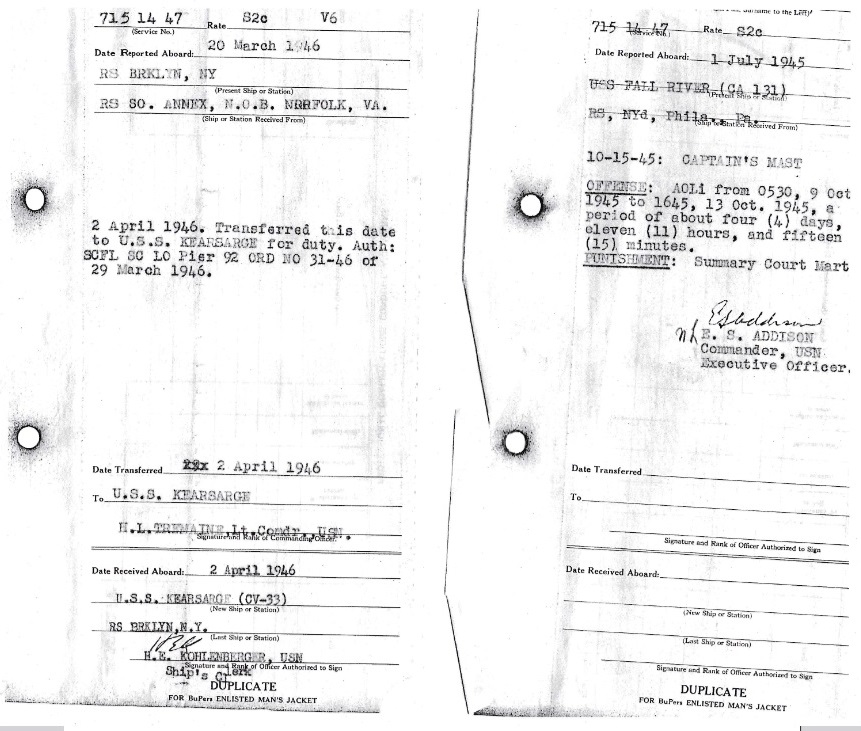 715 14 47 Rate S2c V6
(Service No.)
Date Reported Aboard: 20 March 1946
RS BRKLYN, NY
(Present Ship or Station)
RS SO. ANNEX, N.O.B. NORFOLK, VA.
(Ship or Station Received From)
2 April 1946. Transferred this date
to U.S.S. KEARSARGE for duty. Auth:
SCFL SC LO Pier 92 ORD NO 31-46 of
29 March 1946.
Date Transferred 2 April 1946
To U.S.S. KEARSARGE
H.L.TREMAINE,Lt.Comdr. USN.
Signature and Rank of Commanding Officer.
Date Received Aboard: 2 April 1946
U.S.S. KEARSARGE (CV-33)
(New Ship or Station)
RS BRKLYN,N.Y.
(Last Ship or Station)
H.E. KOHLENBERGER, USN
Signature and Rank of Officer Authorized to Sign
Ship's Clerk
DUPLICATE
FOR BuPers ENLISTED MAN'S JACKET
(Surname to the Left)
715 14 47 Rate S2c
(Service No.)
Date Reported Aboard: 1 July 1945
USS FALL RIVER (CA 131)
(Present Ship or Station)
RS, NYd, Phila., Pa.
(Ship or Station Received From)
10-15-45: CAPTAIN'S MAST
OFFENSE: AOLi from 0530, 9 Oct
1945 to 1645, 13 Oct. 1945, a
period of about four (4) days,
eleven (11) hours, and fifteen
(15) minutes.
PUNISHMENT: Summary Court Mart
E. S. ADDISON
Commander, USN
Executive Officer.
Date Transferred
To
Signature and Rank of Officer Authorized to Sign
Date Received Aboard:
(New Ship or Station)
(Last Ship or Station)
Signature and Rank of Officer Authorized to Sign
DUPLICATE
FOR BuPers ENLISTED MAN'S JACKET